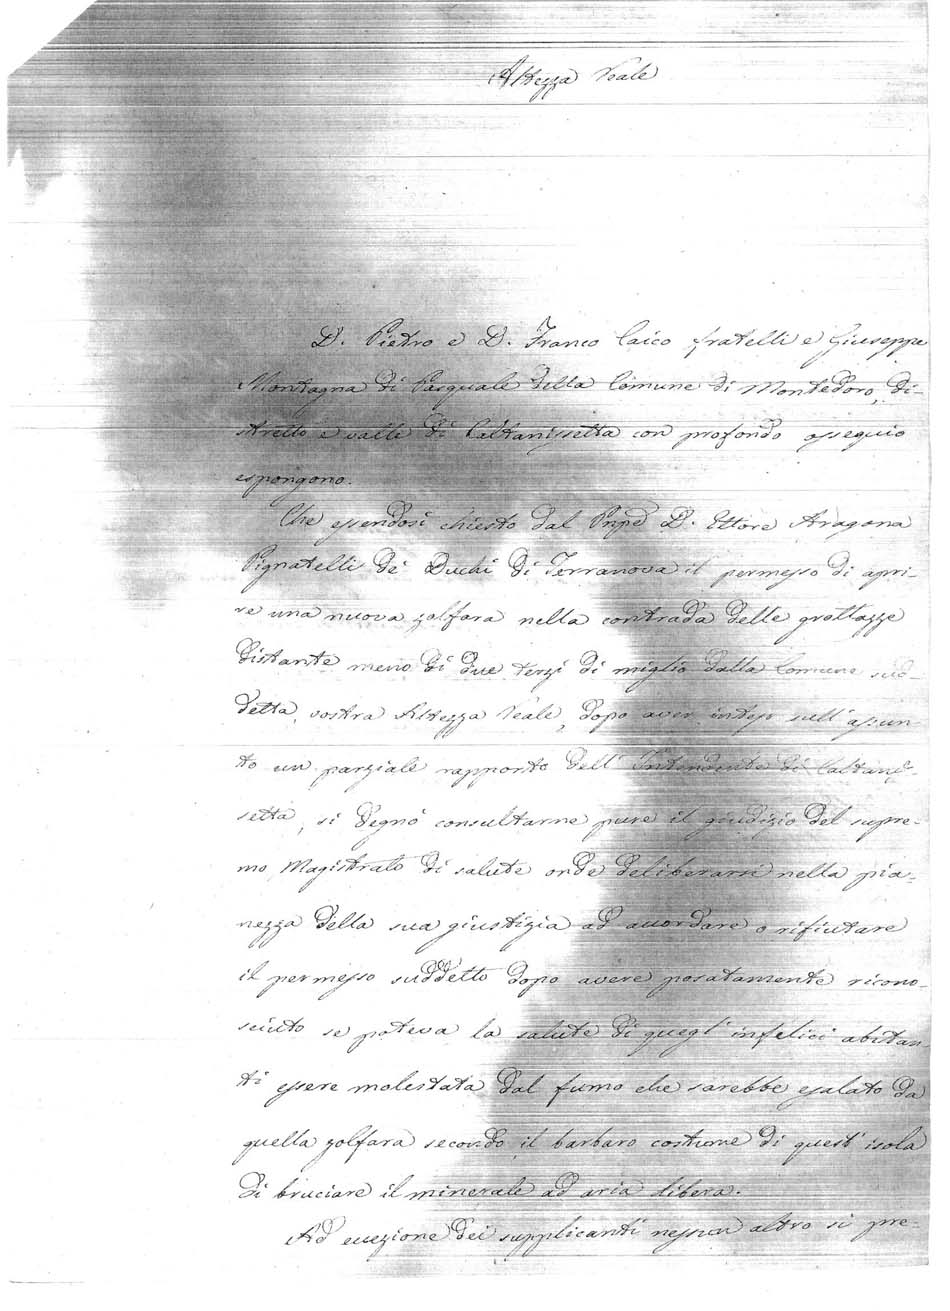 Altezza Reale
D. Pietro e D. Franco Caico fratelli e Giuseppe
Montagna di Pasquale della Comune di Montedoro, di-
stretto e valle di Caltanissetta con profondo ossequio
espongono.
Che essendosi chiesto dal Pnpe D. Ettore Aragona
Pignatelli de' Duchi di Terranova il permesso di apri-
re una nuova zolfara nella contrada delle grottazze
distante meno di due terzi di miglio dalla Comune sud-
detta, vostra Altezza Reale, dopo aver inteso sull'assun-
to un parziale rapporto dell'Intendente di Caltanis-
setta, si degnò consultarne pure il giudizio del supre-
mo Magistrato di salute onde deliberarsi nella pia-
nezza della sua giustizia ad accordare o rifiutare
il permesso suddetto dopo avere posatamente ricono-
sciuto se poteva la salute di quegl'infelici abitan-
ti essere molestata dal fumo che sarebbe esalato da
quella zolfara secondo il barbaro costume di quest'isola
di bruciare il minerale ad aria libera.
Ad eccezione dei supplicanti nessun altro si pre-